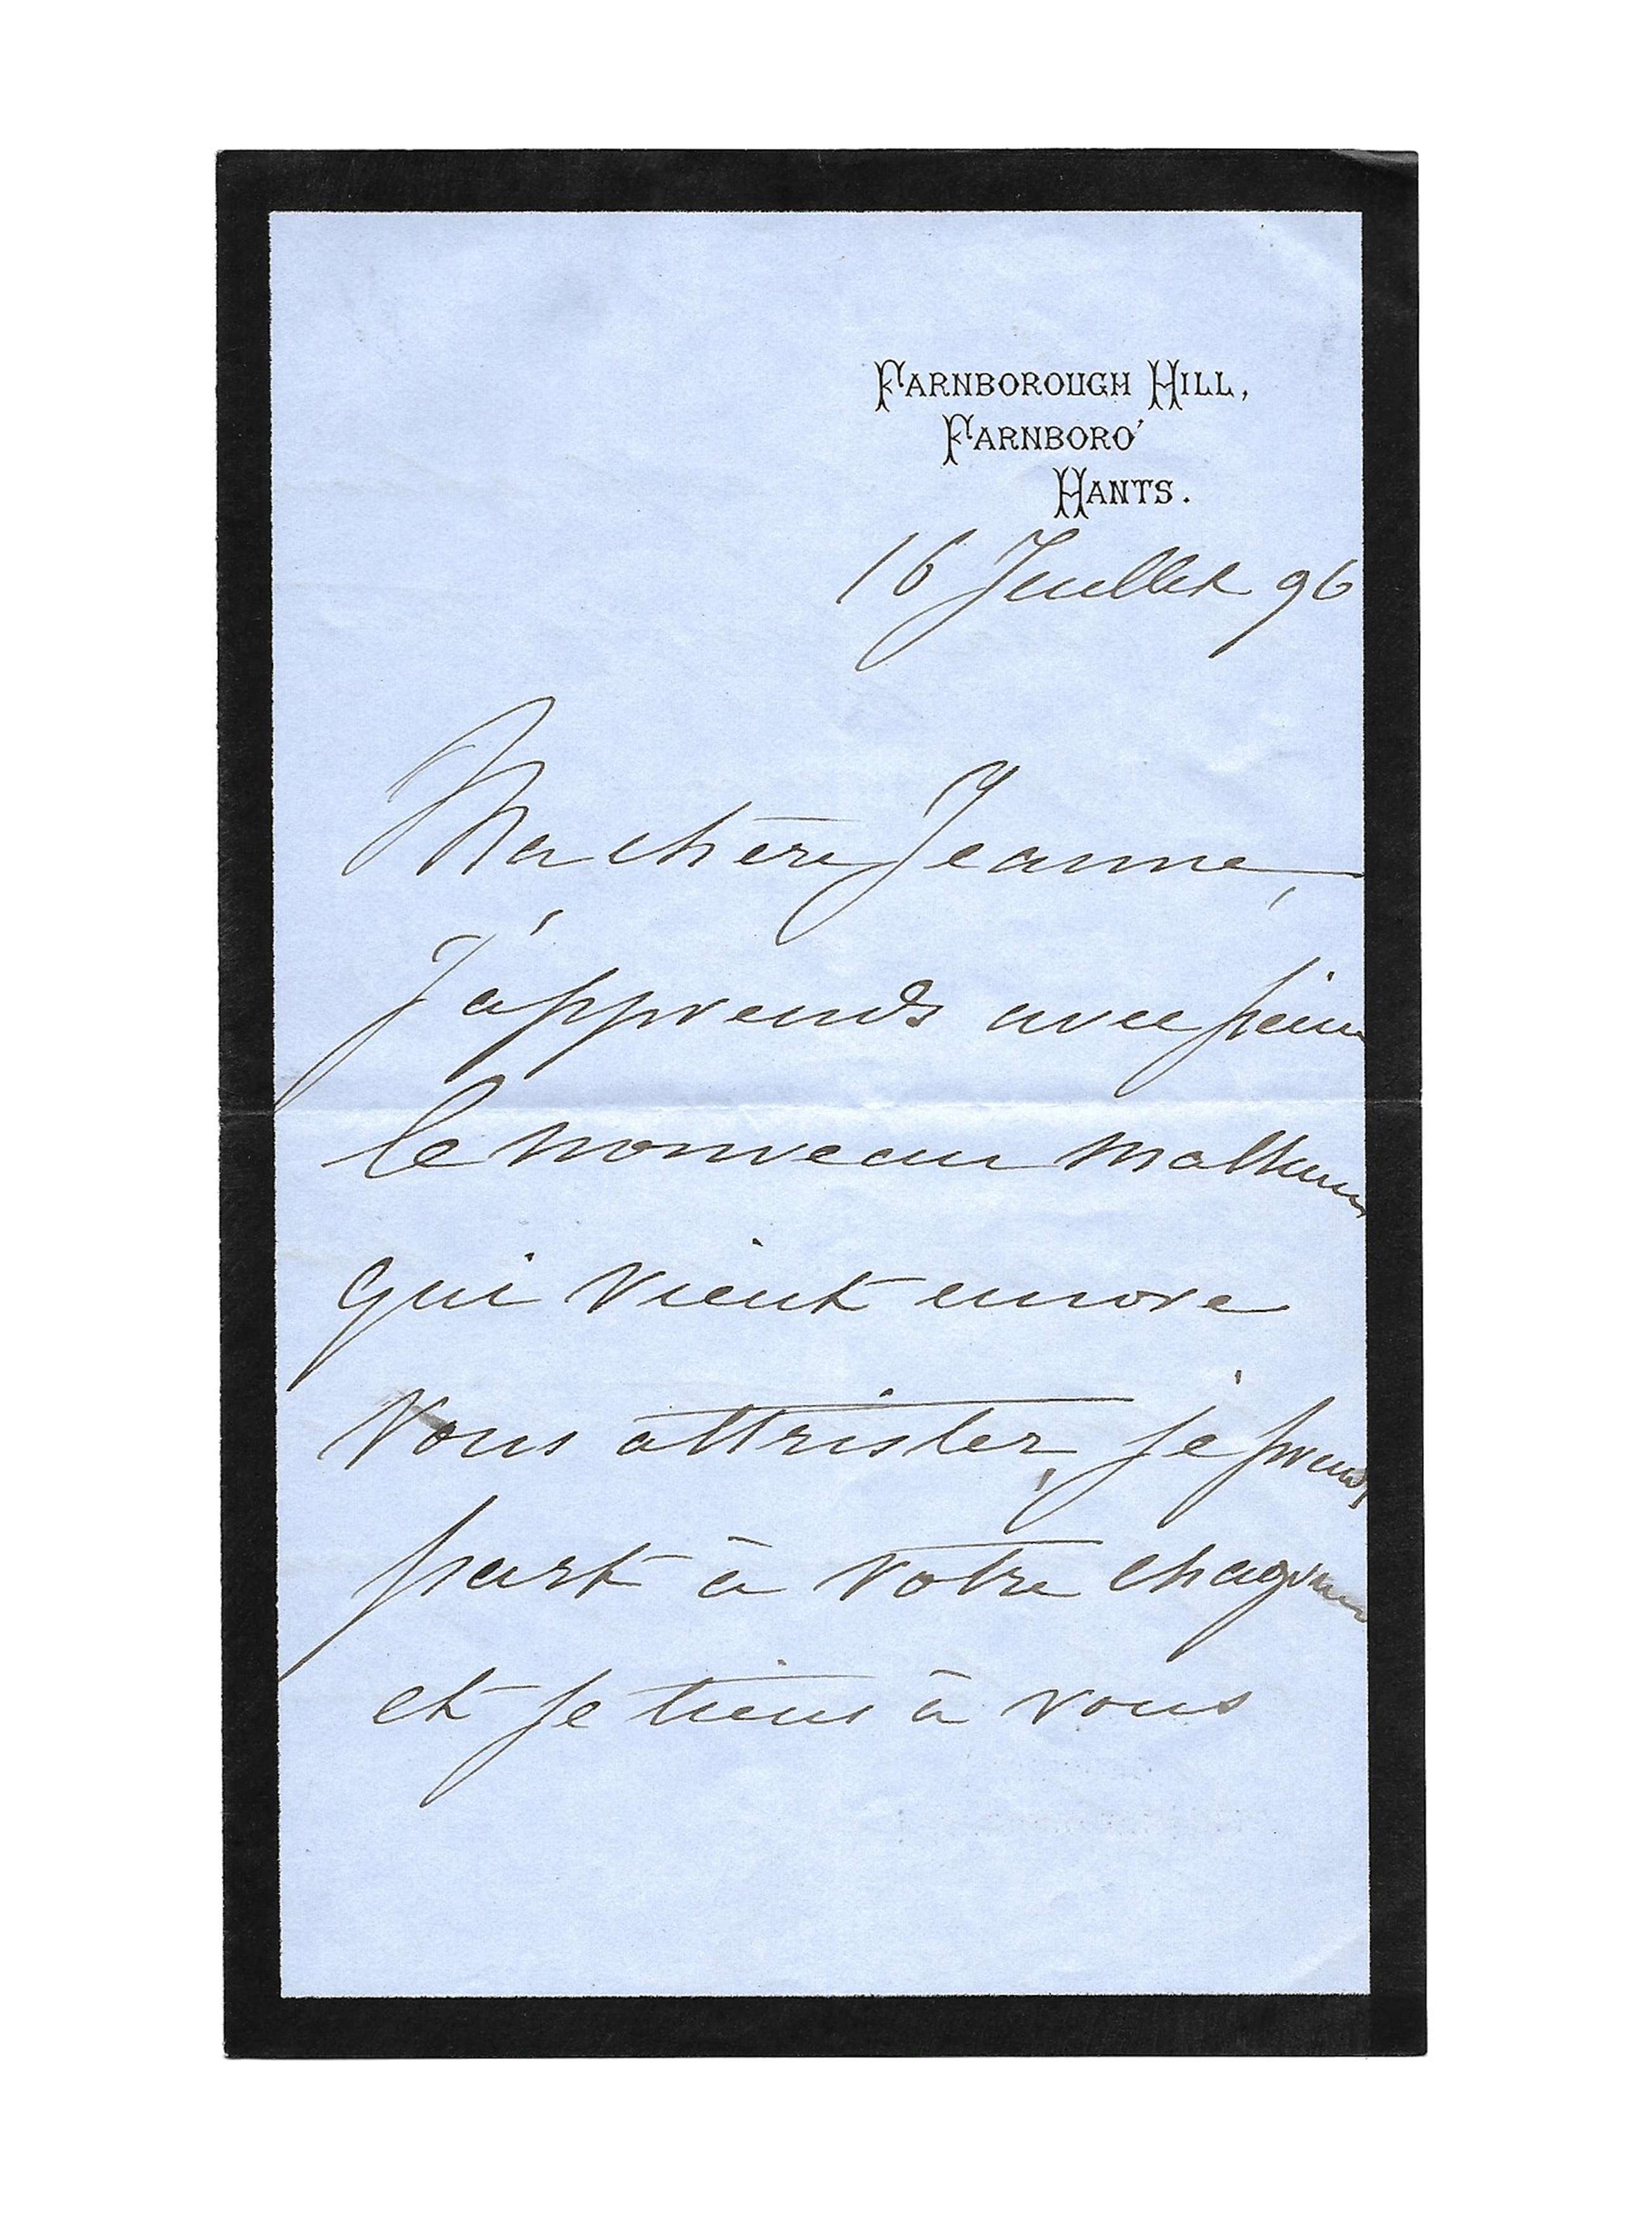 FARNBOROUGH HILL,
FARNBORO'
HANTS.
16 Juillet 96
Ma chère Jeanne,
J'apprends avec peine
le nouveau malheur
qui vient encore
vous attrister, je prends
part à votre chagrin
et je tiens à vous